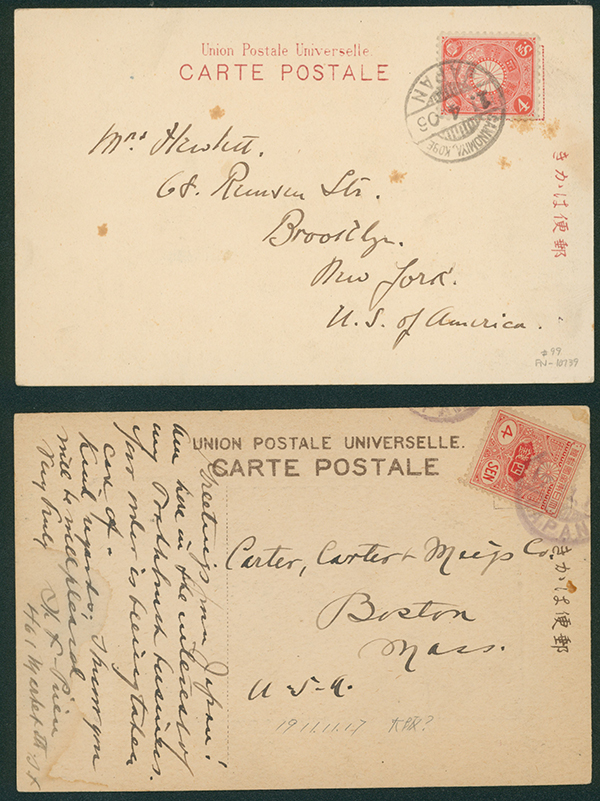 Union Postale Universelle.
CARTE POSTALE
4
SN
SANNOMIYA, KOBE
JAPAN
4 05
きかは便郵
Mrs Hewlett.
68. Remsen Str.
Brooklyn.
New York.
U. S. of America.
#99
PN-10739
UNION POSTALE UNIVERSELLE.
CARTE POSTALE
4
SEN
JAPAN
きかは便郵
Greetings from Japan!
Am here in the interest of
my Toothbrush business.
Your order is being taken
care of.
Kind regards; I know you
will be well pleased
Very truly
461 Market St S.F.
Carter, Carter & Meigs Co.
Boston
Mass.
U.S.A.
1911.11.17 大阪?